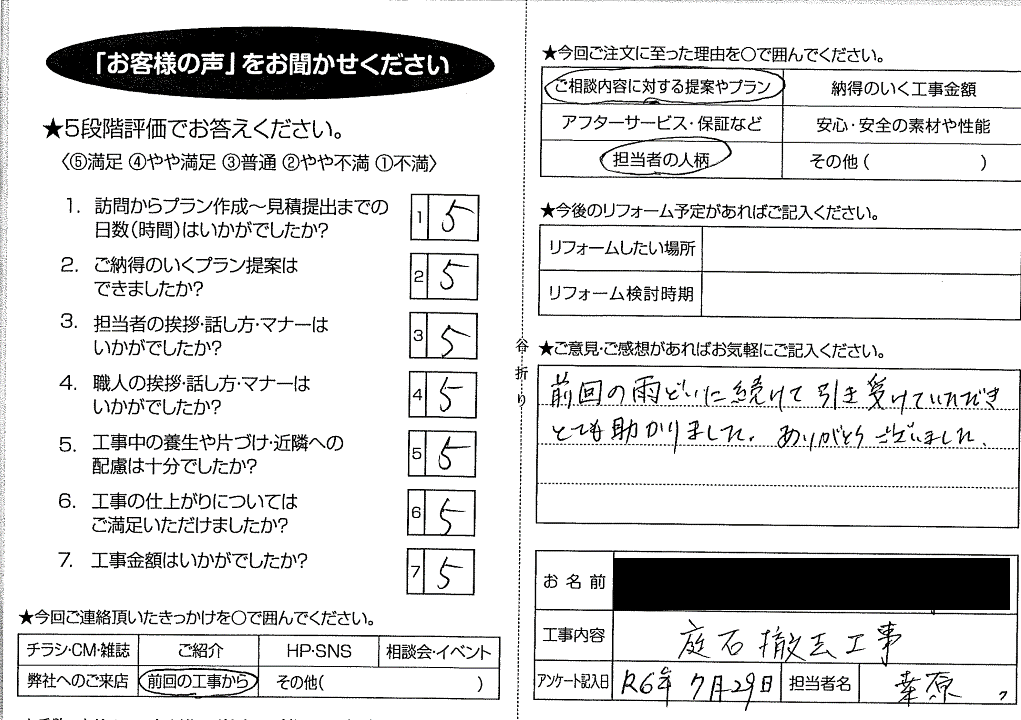 「お客様の声」をお聞かせください
★5段階評価でお答えください。
〈⑤満足 ④やや満足 ③普通 ②やや不満 ①不満〉
1. 訪問からプラン作成～見積提出までの
日数(時間)はいかがでしたか?
1 5
2. ご納得のいくプラン提案は
できましたか?
2 5
3. 担当者の挨拶・話し方・マナーは
いかがでしたか?
3 5
4. 職人の挨拶・話し方・マナーは
いかがでしたか?
4 5
5. 工事中の養生や片づけ・近隣への
配慮は十分でしたか?
5 5
6. 工事の仕上がりについては
ご満足いただけましたか?
6 5
7. 工事金額はいかがでしたか?
7 5
★今回ご連絡頂いたきっかけを〇で囲んでください。
チラシ・CM・雑誌 ご紹介 HP・SNS 相談会・イベント
弊社へのご来店 前回の工事から その他( )
谷折り
★今回ご注文に至った理由を〇で囲んでください。
ご相談内容に対する提案やプラン 納得のいく工事金額
アフターサービス・保証など 安心・安全の素材や性能
担当者の人柄 その他( )
★今後のリフォーム予定があればご記入ください。
リフォームしたい場所
リフォーム検討時期
★ご意見・ご感想があればお気軽にご記入ください。
前回の雨どいに続けて引き受けていただき
とても助かりました。ありがとうございました。
お名前
工事内容 庭石撤去工事
アンケート記入日 R6年 7月29日 担当者名